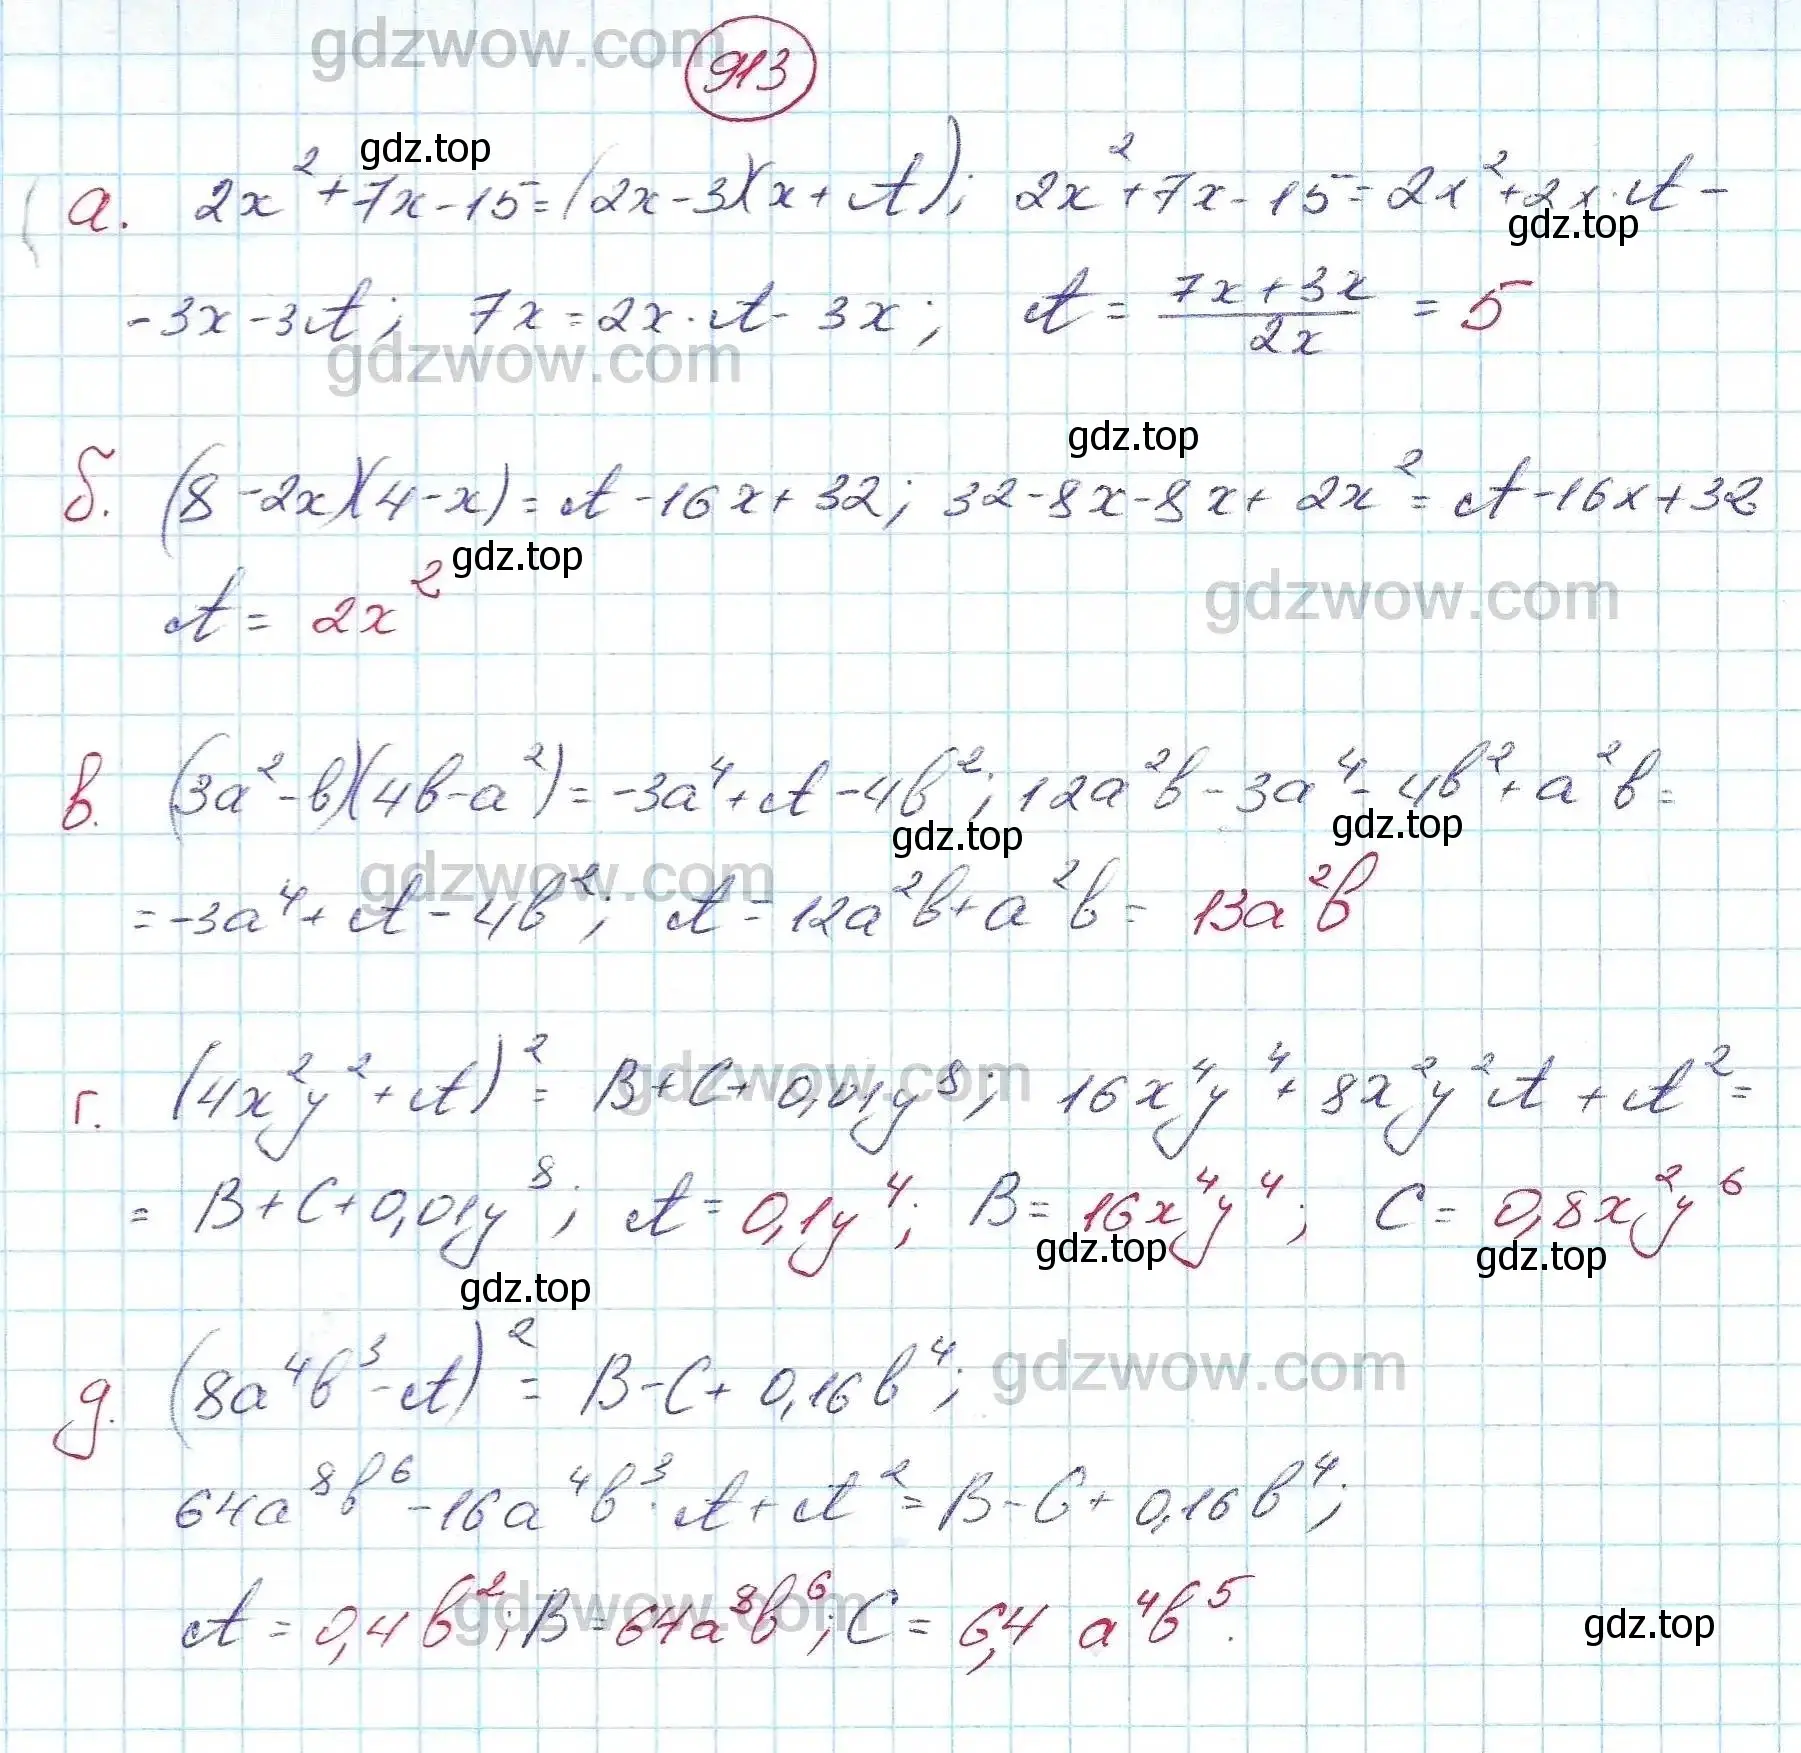 gdzwow.com
913
gdz.top
а. 2x² + 7x - 15 = (2x - 3)(x + A); 2x² + 7x - 15 = 2x² + 2x · A -
gdz.top
- 3x - 3A; 7x = 2x · A - 3x; A = (7x + 3x)/(2x) = 5
gdzwow.com
gdz.top
б. (8 - 2x)(4 - x) = A - 16x + 32; 32 - 8x - 8x + 2x² = A - 16x + 32
gdz.top
gdzwow.com
A = 2x²
в. (3a² - b)(4b - a²) = -3a⁴ + A - 4b²; 12a²b - 3a⁴ - 4b² + a²b =
gdz.top gdz.top
gdzwow.com
= -3a⁴ + A - 4b²; A = 12a²b + a²b = 13a²b
г. (4x²y² + A)² = B + C + 0,01y⁸; 16x⁴y⁴ + 8x²y²A + A² =
gdzwow.com
= B + C + 0,01y⁸; A = 0,1y⁴; B = 16x⁴y⁴; C = 0,8x²y⁶
gdz.top gdz.top
gdz.top
д. (8a⁴b³ - A)² = B - C + 0,16b⁴;
gdzwow.com
64a⁸b⁶ - 16a⁴b³ · A + A² = B - C + 0,16b⁴;
A = 0,4b²; B = 64a⁸b⁶; C = 6,4 a⁴b⁵.
gdzwow.com
gdz.top